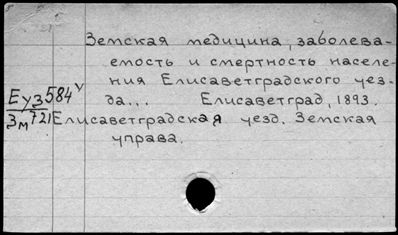 Земская медицина, заболева-
емость и смертность населе-
ния Елисаветградского уез-
Еуз584у
да... Елисаветград, 1893.
Зм721
Елисаветградская уезд. Земская
управа.